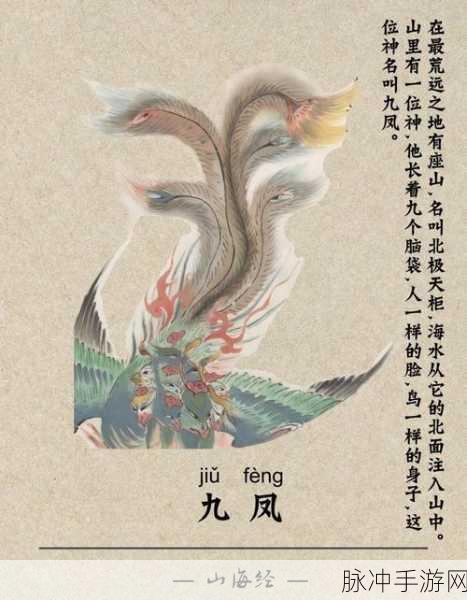 在最荒远之地有座山，名叫北极天柜，海水从它的北面注入山中。
山里有一位神，他长着九个脑袋，人一样的脸，鸟一样的身子，这
位神名叫九凤。
jiǔ fèng
九凤
— 山海经 —
脉冲手游网